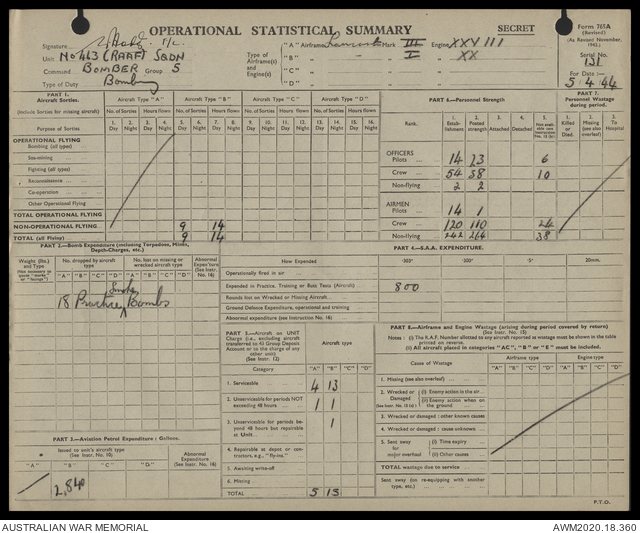 OPERATIONAL STATISTICAL SUMMARY
SECRET
Form 765A
(Revised)
(As Revised November, 1943.)
Signature F/L.
Unit No 463 (RAAF) SQDN
Command BOMBER Group 5
Type of Duty Bombing
Type of Airframe(s) and Engine(s)
"A" Airframe Lancaster Mark III Engine XXVIII
"B" " " I " XX
"C" " " "
"D" " " "
Serial No. 131
For Date:—
5.4.44
PART 1.
Aircraft Sorties.
(Include Sorties for missing aircraft)
Aircraft Type "A"
Aircraft Type "B"
Aircraft Type "C"
Aircraft Type "D"
No. of Sorties Hours flown No. of Sorties Hours flown No. of Sorties Hours flown No. of Sorties Hours flown
Purpose of Sorties
1. Day 2. Night 3. Day 4. Night 5. Day 6. Night 7. Day 8. Night 9. Day 10. Night 11. Day 12. Night 13. Day 14. Night 15. Day 16. Night
OPERATIONAL FLYING
Bombing (all types)
Sea-mining
Fighting (all types)
Reconnaissance
Co-operation
Other Operational Flying
TOTAL OPERATIONAL FLYING
NON-OPERATIONAL FLYING 9 14
TOTAL (all Flying) 9 14
PART 6.—Personnel Strength
Rank.
1. Establishment
2. Posted strength
3. Attached
4. Detached
5. Non-available
OFFICERS
Pilots 14 23 6
Crew 54 38 10
Non-flying 2 2
AIRMEN
Pilots 14 1
Crew 120 110 24
Non-flying 38
PART 7.
Personnel Wastage during period.
1. Killed or Died.
2. Missing (see also overleaf)
3. To Hospital
PART 2.—Bomb Expenditure (including Torpedoes, Mines, Depth-Charges, etc.)
Weight (lbs.) and Type
No. dropped by aircraft type
No. lost on missing or wrecked aircraft type
Abnormal Expenditure (See Instr. No. 16)
"A" "B" "C" "D" "A" "B" "C" "D"
Smoke
18 Practice Bombs
PART 4.—S.A.A. EXPENDITURE.
How Expended
·303" ·300" ·5" 20mm.
Operationally fired in air
Expended in Practice, Training or Butt Tests (Aircraft) 800
Rounds lost on Wrecked or Missing Aircraft
Ground Defence Expenditure, operational and training
Abnormal expenditure (see Instruction No. 16)
PART 5.—Aircraft on UNIT Charge (i.e., excluding aircraft transferred to 43 Group Deposit Account or to the charge of any other unit) (See Instr. 12)
Aircraft type
Category "A" "B" "C" "D"
1. Serviceable 4 13
2. Unserviceable for periods NOT exceeding 48 hours 1 1
3. Unserviceable for periods beyond 48 hours but repairable at Unit 1
4. Repairable at depot or contractors, e.g., "fly-ins."
5. Awaiting write-off
6. Missing
TOTAL 5 15
PART 8.—Airframe and Engine Wastage (arising during period covered by return)
(See Instr. No. 15)
Notes : (i) The R.A.F. Number allotted to any aircraft reported as wastage must be shown in the table printed on reverse.
(ii) All aircraft placed in categories "AC", "B" or "E" must be included.
Cause of Wastage
Airframe type
Engine type
"A" "B" "C" "D" "A" "B" "C" "D"
1. Missing (see also overleaf)
2. Wrecked or Damaged
(i) Enemy action in the air
(ii) Enemy action on the ground
3. Wrecked or damaged : other known causes
4. Wrecked or damaged : cause unknown
5. Sent away for major overhaul
(i) Time expiry
(ii) Other causes
TOTAL wastage due to service
Sent away (on re-equipping with another type, etc.)
PART 3.—Aviation Petrol Expenditure : Gallons.
Issued to unit's aircraft type (See Instr. No. 16)
Abnormal Expenditure (See Instr. No. 16)
"A" "B" "C" "D"
2,840
P.T.O.
AUSTRALIAN WAR MEMORIAL
AWM2020.18.360